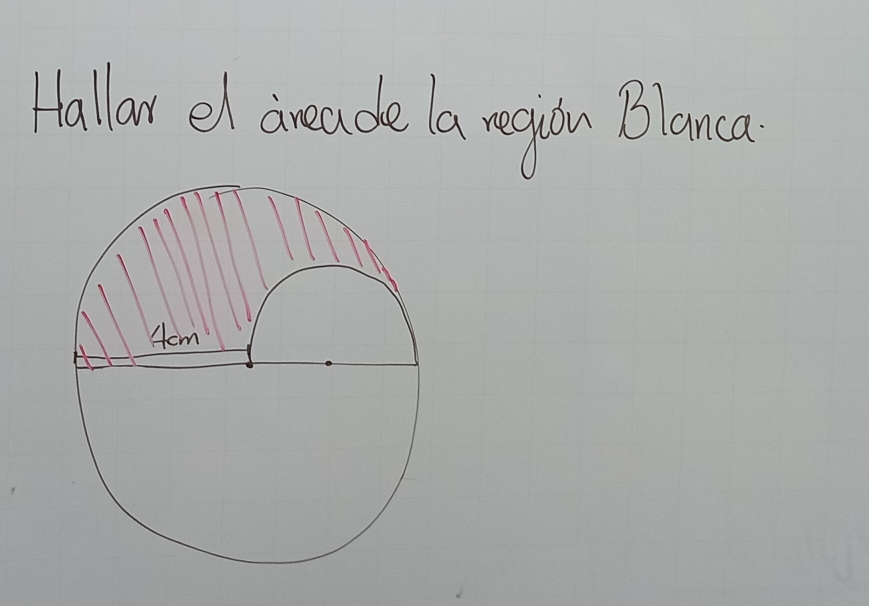 Hallar el àrea de la región Blanca.
4cm